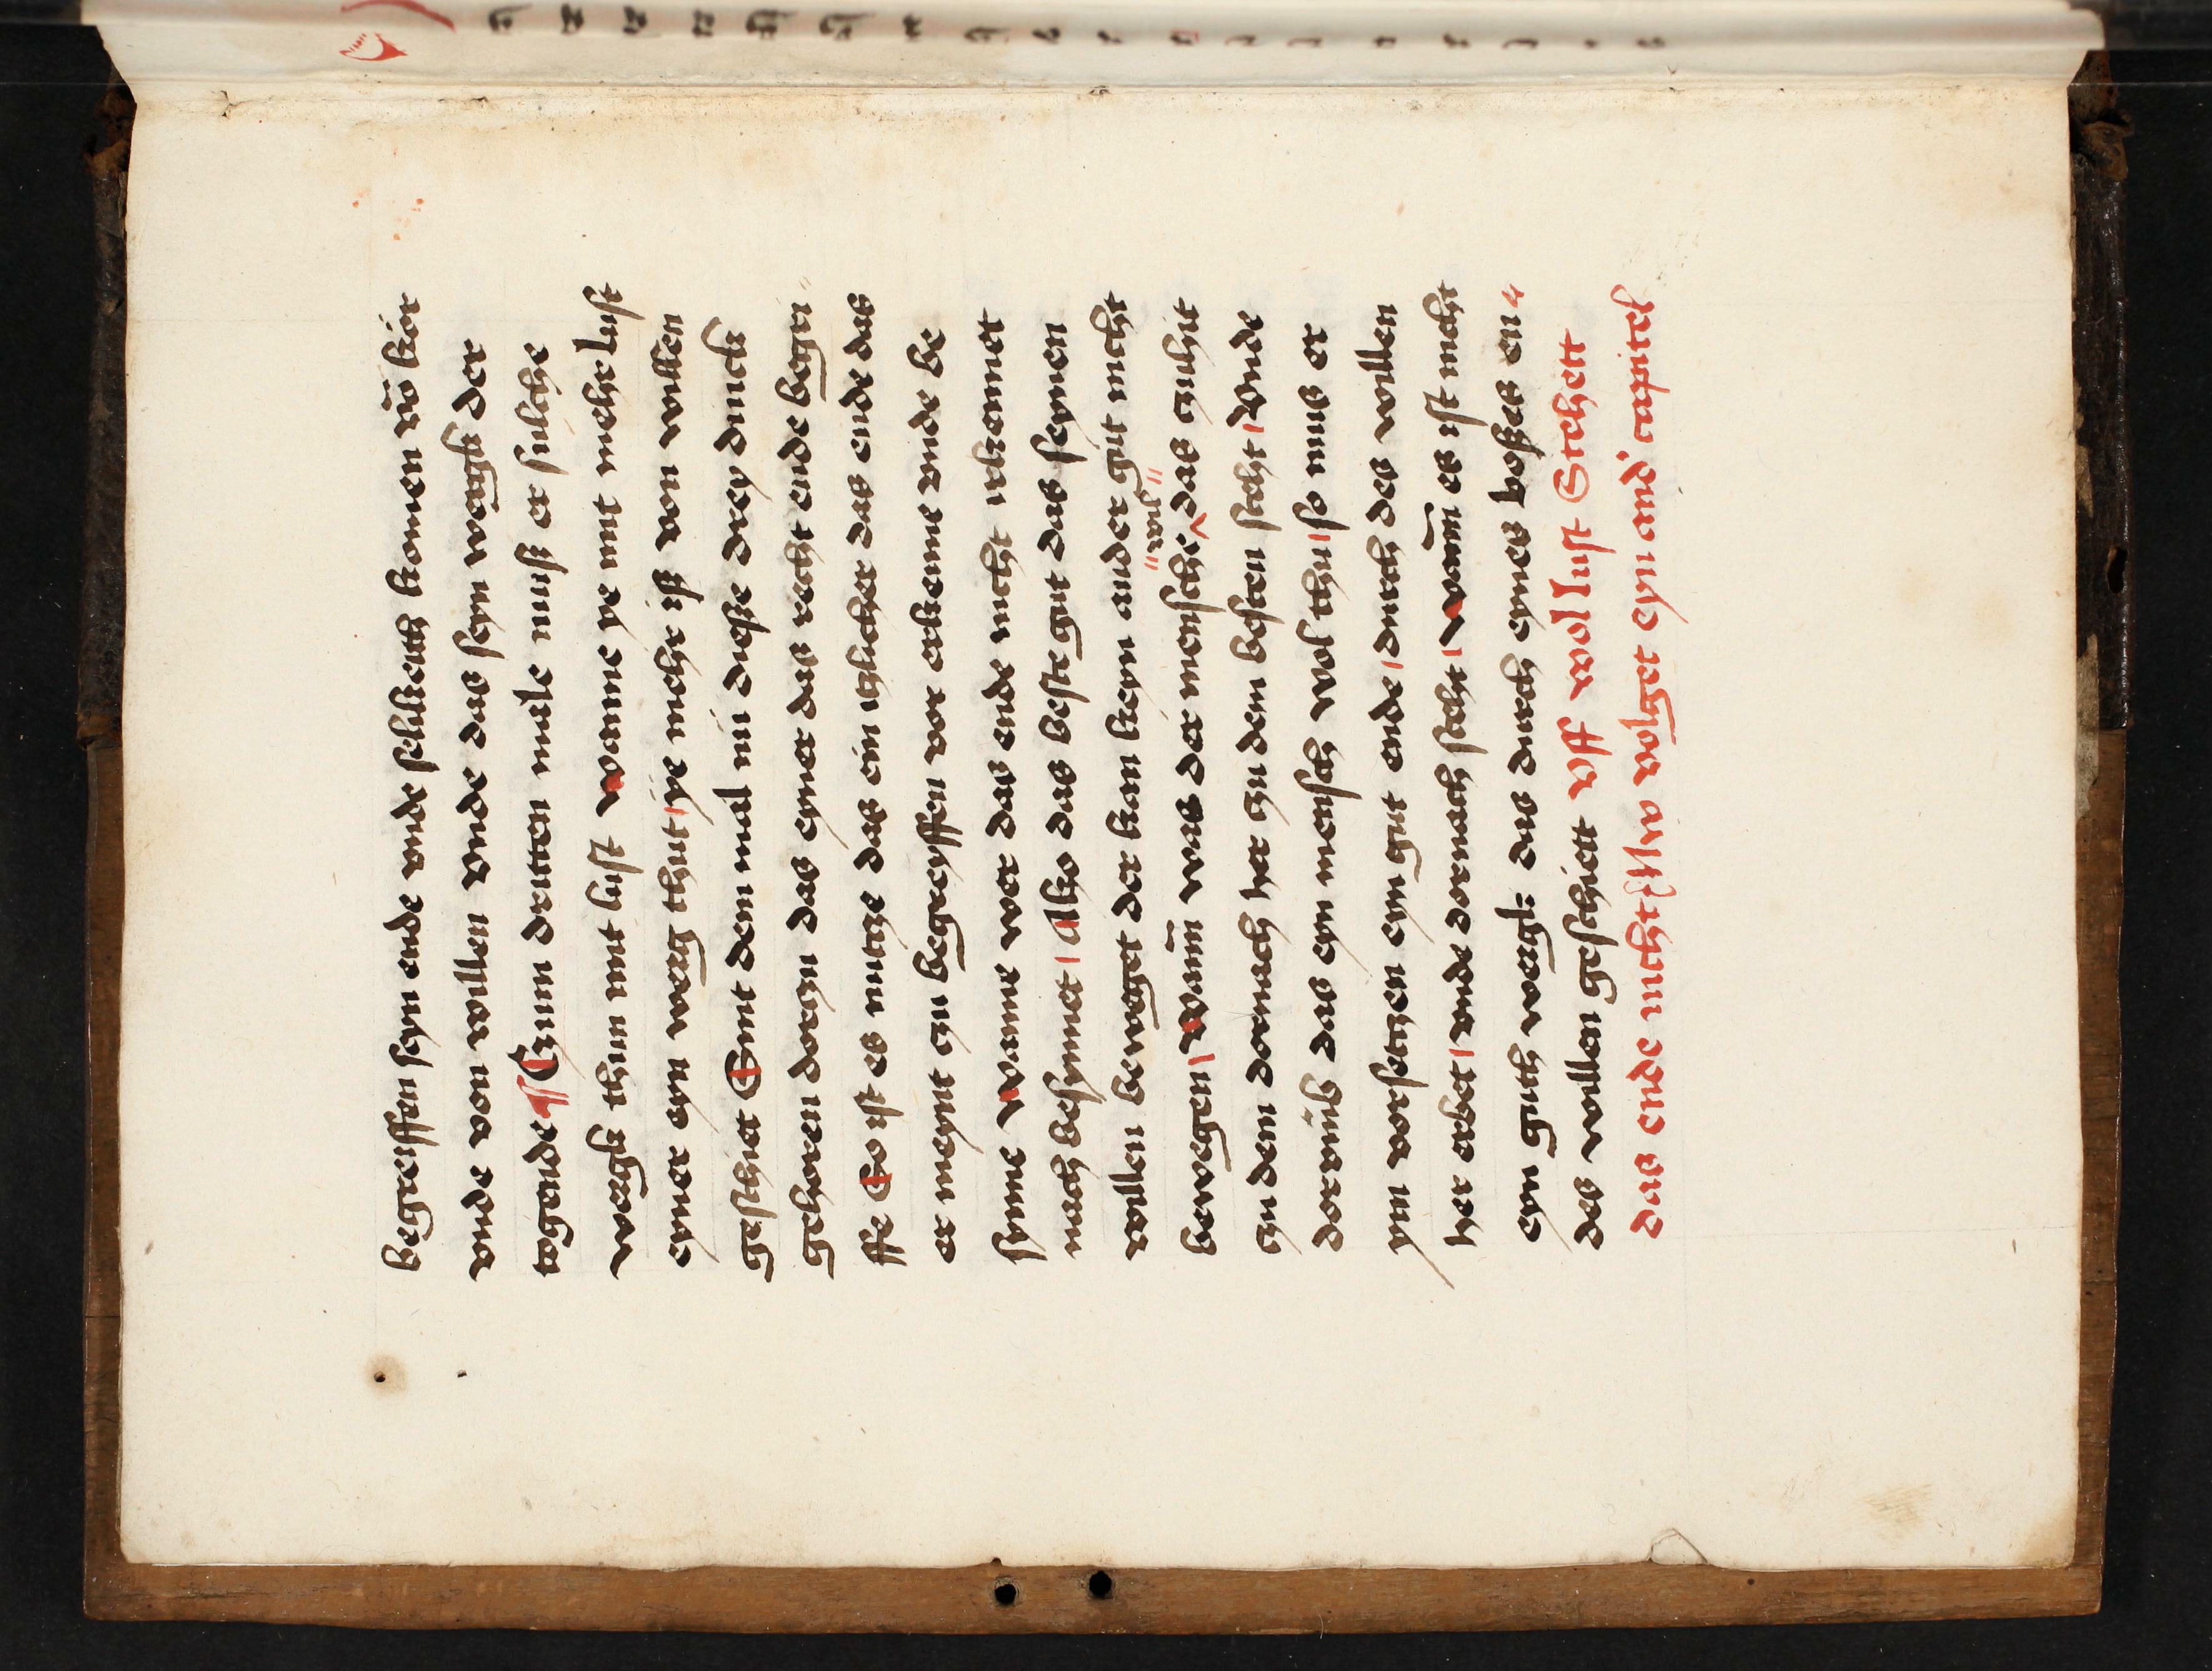 begreiffen seyn ende vnde selikeith komen vō kór
vnde von willen vnde das seyn wergk der
togende ¶ Czum dritten måle muß er sulche
wergk thun mit lust wanne ye mit mehr lust
eyner eyn werg thut / ye mehr iß von willen
geschiet Sint dem mål nů dieße drey dinck
gehoren dorczu das eyner das recht ende begri-
ffe So ist es nutcze das ein itzlicher das ende das
er meynt czu begreyffen vor erkenne vnde be
synne wanne wer das ende nicht irkennet
nach besynnet / Also das beste gut das seynen
willen beweget der kan keyn ander gut nicht
bewegen / Wanň was der mensche "wil" das czuhit
czu dem dornach her czu dem besten steht / Vnde
dorvmb das eyn mensch wol thu / so mus er
ym vorsetczen eyn gut ende / durch des willen
her erbet / vnde dornach stehn / wanň es ist nicht
eyn guth wergk das durch eynes boßes en
des willen geschiett vff wol lust Stehett
das ende nicht ßsso volget eyn and' capitel